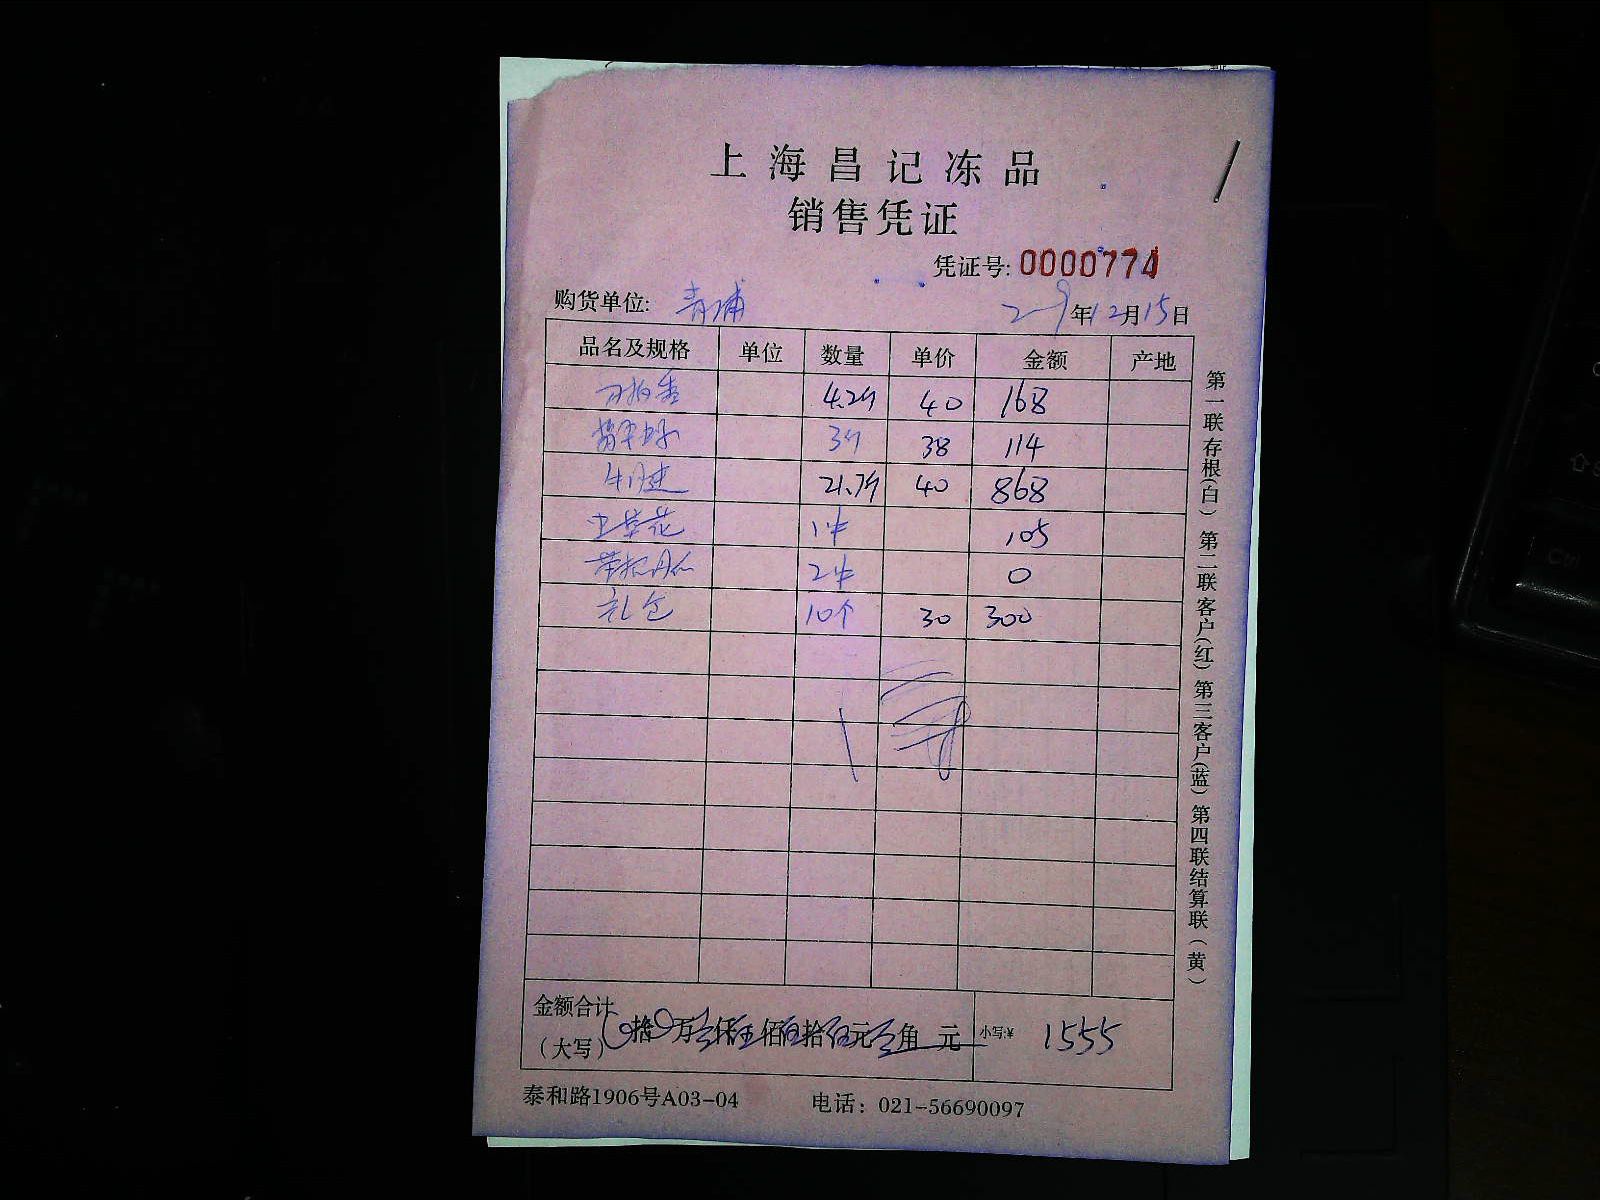 上海昌记冻品
销售凭证
凭证号: 0000774
购货单位: 青浦 年12月15日
品名及规格 单位 数量 单价 金额 产地
4.2斤 40 168
3斤 38 114
牛腱 21.7斤 40 868
虫草花 1件 105
2件 0
礼包 10个 30 300
金额合计
(大写) 拾 万 仟 佰 拾 元 角 元 小写:¥ 1555
泰和路1906号A03-04 电话: 021-56690097
第一联存根(白) 第二联客户(红) 第三客户(蓝) 第四联结算联(黄)